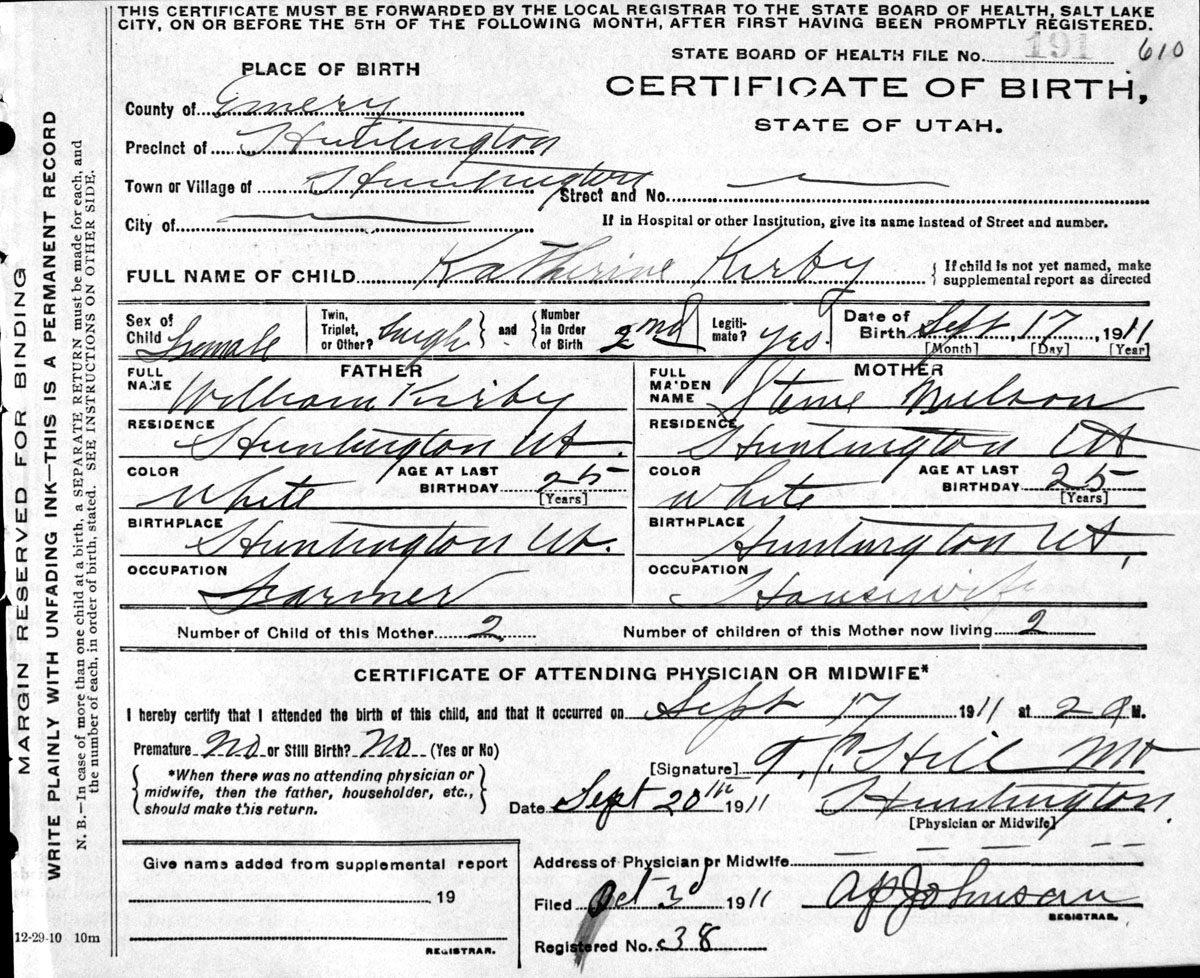 THIS CERTIFICATE MUST BE FORWARDED BY THE LOCAL REGISTRAR TO THE STATE BOARD OF HEALTH, SALT LAKE
CITY, ON OR BEFORE THE 5TH OF THE FOLLOWING MONTH, AFTER FIRST HAVING BEEN PROMPTLY REGISTERED.
STATE BOARD OF HEALTH FILE No. 191 610
PLACE OF BIRTH
CERTIFICATE OF BIRTH,
STATE OF UTAH.
County of Emery
Precinct of Huntington
Town or Village of Huntington Street and No.
City of
If in Hospital or other Institution, give its name instead of Street and number.
FULL NAME OF CHILD Katherine Kirby { If child is not yet named, make supplemental report as directed
Sex of Child Female
Twin, Triplet, or Other? } and { Number in Order of Birth 2nd
Legitimate? Yes.
Date of Birth Sept, 17, 1911
[Month] [Day] [Year]
FATHER
MOTHER
FULL NAME William Kirby
FULL MAIDEN NAME
RESIDENCE Huntington Ut.
RESIDENCE Huntington Ut
COLOR White AGE AT LAST BIRTHDAY 25 [Years]
COLOR White AGE AT LAST BIRTHDAY 25 [Years]
BIRTHPLACE Huntington Ut.
BIRTHPLACE Huntington Ut,
OCCUPATION Farmer
OCCUPATION Housewife
Number of Child of this Mother 2
Number of children of this Mother now living 2
CERTIFICATE OF ATTENDING PHYSICIAN OR MIDWIFE*
I hereby certify that I attended the birth of this child, and that it occurred on Sept 17 1911 at 2 a M.
Premature No or Still Birth? No (Yes or No)
{ *When there was no attending physician or midwife, then the father, householder, etc., should make this return. }
[Signature] Hill MD
Date Sept 20th 1911 Huntington.
[Physician or Midwife]
Give name added from supplemental report
19
REGISTRAR.
Address of Physician or Midwife
Filed Oct 3d 1911 Johnson
REGISTRAR.
Registered No. 38
12-29-10 10m
MARGIN RESERVED FOR BINDING
WRITE PLAINLY WITH UNFADING INK—THIS IS A PERMANENT RECORD
N. B.—In case of more than one child at a birth, a SEPARATE RETURN must be made for each, and
the number of each, in order of birth, stated. SEE INSTRUCTIONS ON OTHER SIDE.